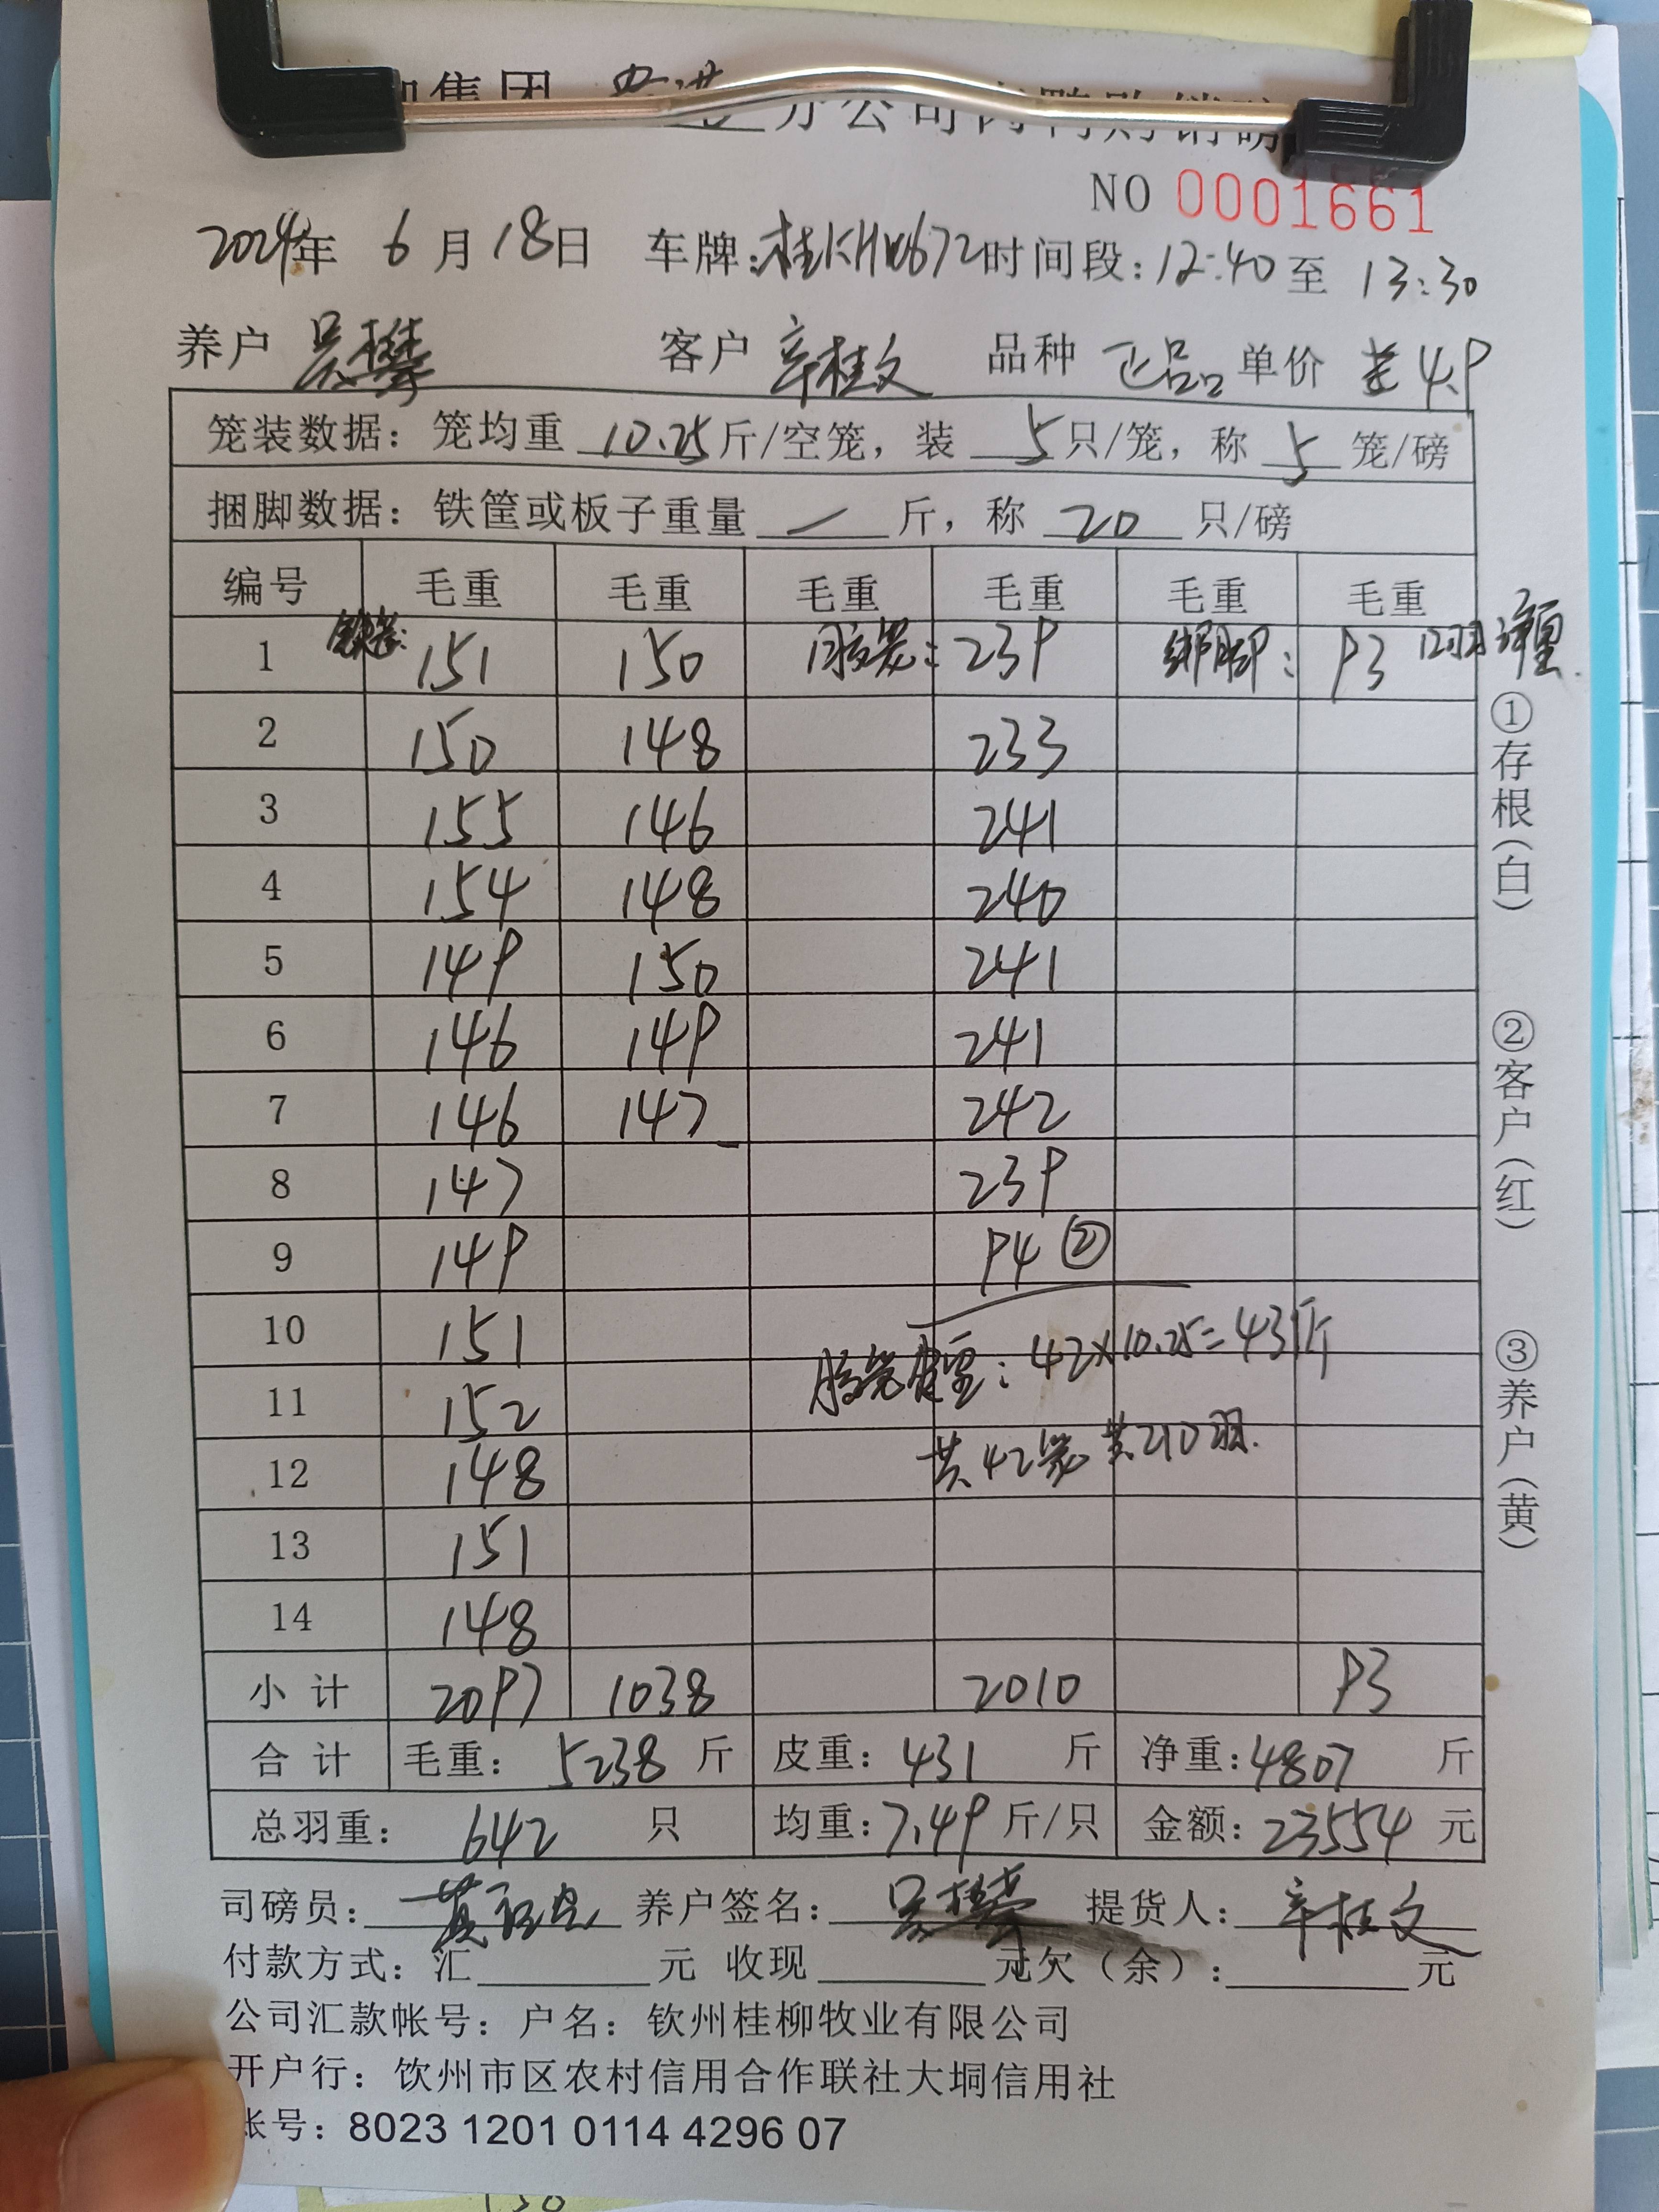 集团 分公司肉鸭购销
NO 0001661
2024年 6月18日 车牌:桂KHW672 时间段:12:40至 13:30
养户 吴攀 客户 辛桂文 品种 正品 单价 4.9
笼装数据:笼均重 10.25斤/空笼,装 5只/笼,称 5 笼/磅
捆脚数据:铁筐或板子重量 / 斤,称 20 只/磅
编号 毛重 毛重 毛重 毛重 毛重 毛重
1 151 150 胶笼: 239 绑脚: 93 12羽
2 150 148 233
3 155 146 241
4 154 148 240
5 149 150 241
6 146 149 241
7 146 147 242
8 147 239
9 149 94 ②
10 151
胶笼皮重:42×10.25=431斤
11 152
共42笼 共210羽.
12 148
13 151
14 148
小计 2097 1038 2010 93
合计 毛重: 5238 斤 皮重: 431 斤 净重:4807 斤
总羽重: 642 只 均重:7.49 斤/只 金额:23554 元
司磅员: 养户签名: 吴攀 提货人: 辛桂文
付款方式:汇 元 收现 元欠(余): 元
公司汇款帐号:户名:钦州桂柳牧业有限公司
开户行:钦州市区农村信用合作联社大垌信用社
帐号:8023 1201 0114 4296 07
①存根(白)
②客户(红)
③养户(黄)